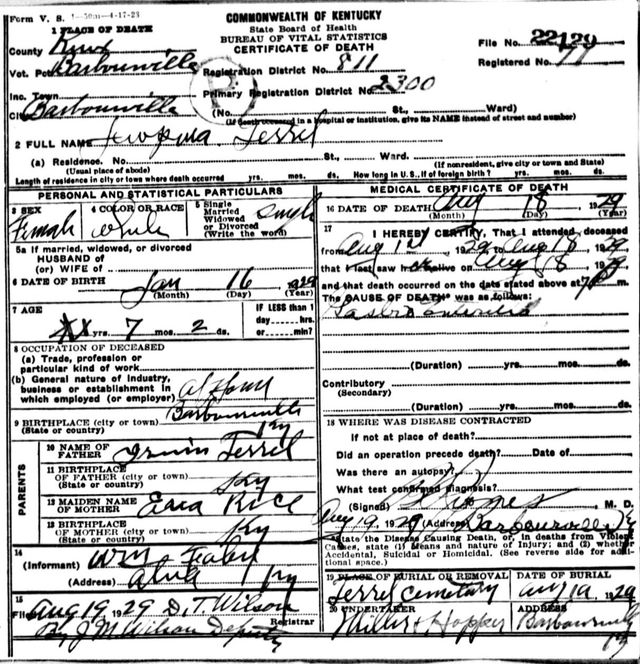 Form V. S. 1—50m—4-17-23
COMMONWEALTH OF KENTUCKY
State Board of Health
BUREAU OF VITAL STATISTICS
CERTIFICATE OF DEATH
File No. 22129
Registered No. 77
1 PLACE OF DEATH
County Knox
Vot. Pct. Barbourville
Registration District No. 811
Inc. Town
Primary Registration District No. 2300
City Barbourville (No. St., Ward)
(If death occurred in a hospital or institution, give its NAME instead of street and number)
2 FULL NAME Terrel
(a) Residence. No. St., Ward.
(Usual place of abode) (If nonresident, give city or town and State)
Length of residence in city or town where death occurred yrs. mos. ds. How long in U. S., if of foreign birth? yrs. mos. ds.
PERSONAL AND STATISTICAL PARTICULARS
3 SEX Female
4 COLOR OR RACE white
5 Single Married Widowed or Divorced (Write the word) Single
5a If married, widowed, or divorced
HUSBAND of
(or) WIFE of
6 DATE OF BIRTH Jan 16 1929
(Month) (Day) (Year)
7 AGE yrs. 7 mos. 2 ds.
IF LESS than 1 day hrs. or min?
8 OCCUPATION OF DECEASED
(a) Trade, profession or particular kind of work
(b) General nature of Industry, business or establishment in which employed (or employer) at Home
9 BIRTHPLACE (city or town) Barbourville
(State or country) Ky
PARENTS
10 NAME OF FATHER Irwin Terrel
11 BIRTHPLACE OF FATHER (city or town)
(State or country) Ky
12 MAIDEN NAME OF MOTHER Rice
13 BIRTHPLACE OF MOTHER (city or town)
(State or country) Ky
14
(Informant) Wm
(Address) Ky
15
Filed Aug 19, 1929 D. T. Wilson
Registrar
By J M Wilson Deputy
MEDICAL CERTIFICATE OF DEATH
16 DATE OF DEATH Aug 18 1929
(Month) (Day) (Year)
17 I HEREBY CERTIFY, That I attended deceased
from Aug 1st, 1929 to Aug 18 1929
that I last saw h alive on Aug 18 1929
and that death occurred on the date stated above at 7 m.
The CAUSE OF DEATH* was as follows:
Gastro Enteritis
(Duration) yrs. mos. ds.
Contributory
(Secondary)
(Duration) yrs. mos. ds.
18 WHERE WAS DISEASE CONTRACTED
If not at place of death?
Did an operation precede death? Date of
Was there an autopsy?
What test confirmed diagnosis?
(Signed) M. D.
Aug 19, 1929 (Address) Barbourville Ky
*State the Disease Causing Death, or, in deaths from Violent
Causes, state (1) Means and nature of Injury; and (2) whether
Accidental, Suicidal or Homicidal. (See reverse side for addi-
tional space.)
19 PLACE OF BURIAL OR REMOVAL Terrel Cemetary
DATE OF BURIAL Aug 19 1929
20 UNDERTAKER Miller & Hopper
ADDRESS Barbourville
Ky